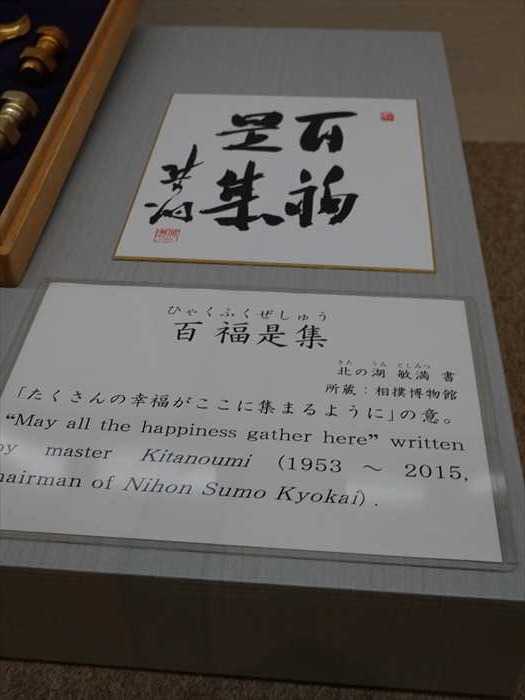 百福
是集
ひゃくふくぜしゅう
百福是集
きた うん としみつ
北の湖 敏満 書
所蔵：相撲博物館
「たくさんの幸福がここに集まるように」の意。
“May all the happiness gather here” written
by master Kitanoumi (1953 ～ 2015,
chairman of Nihon Sumo Kyokai).